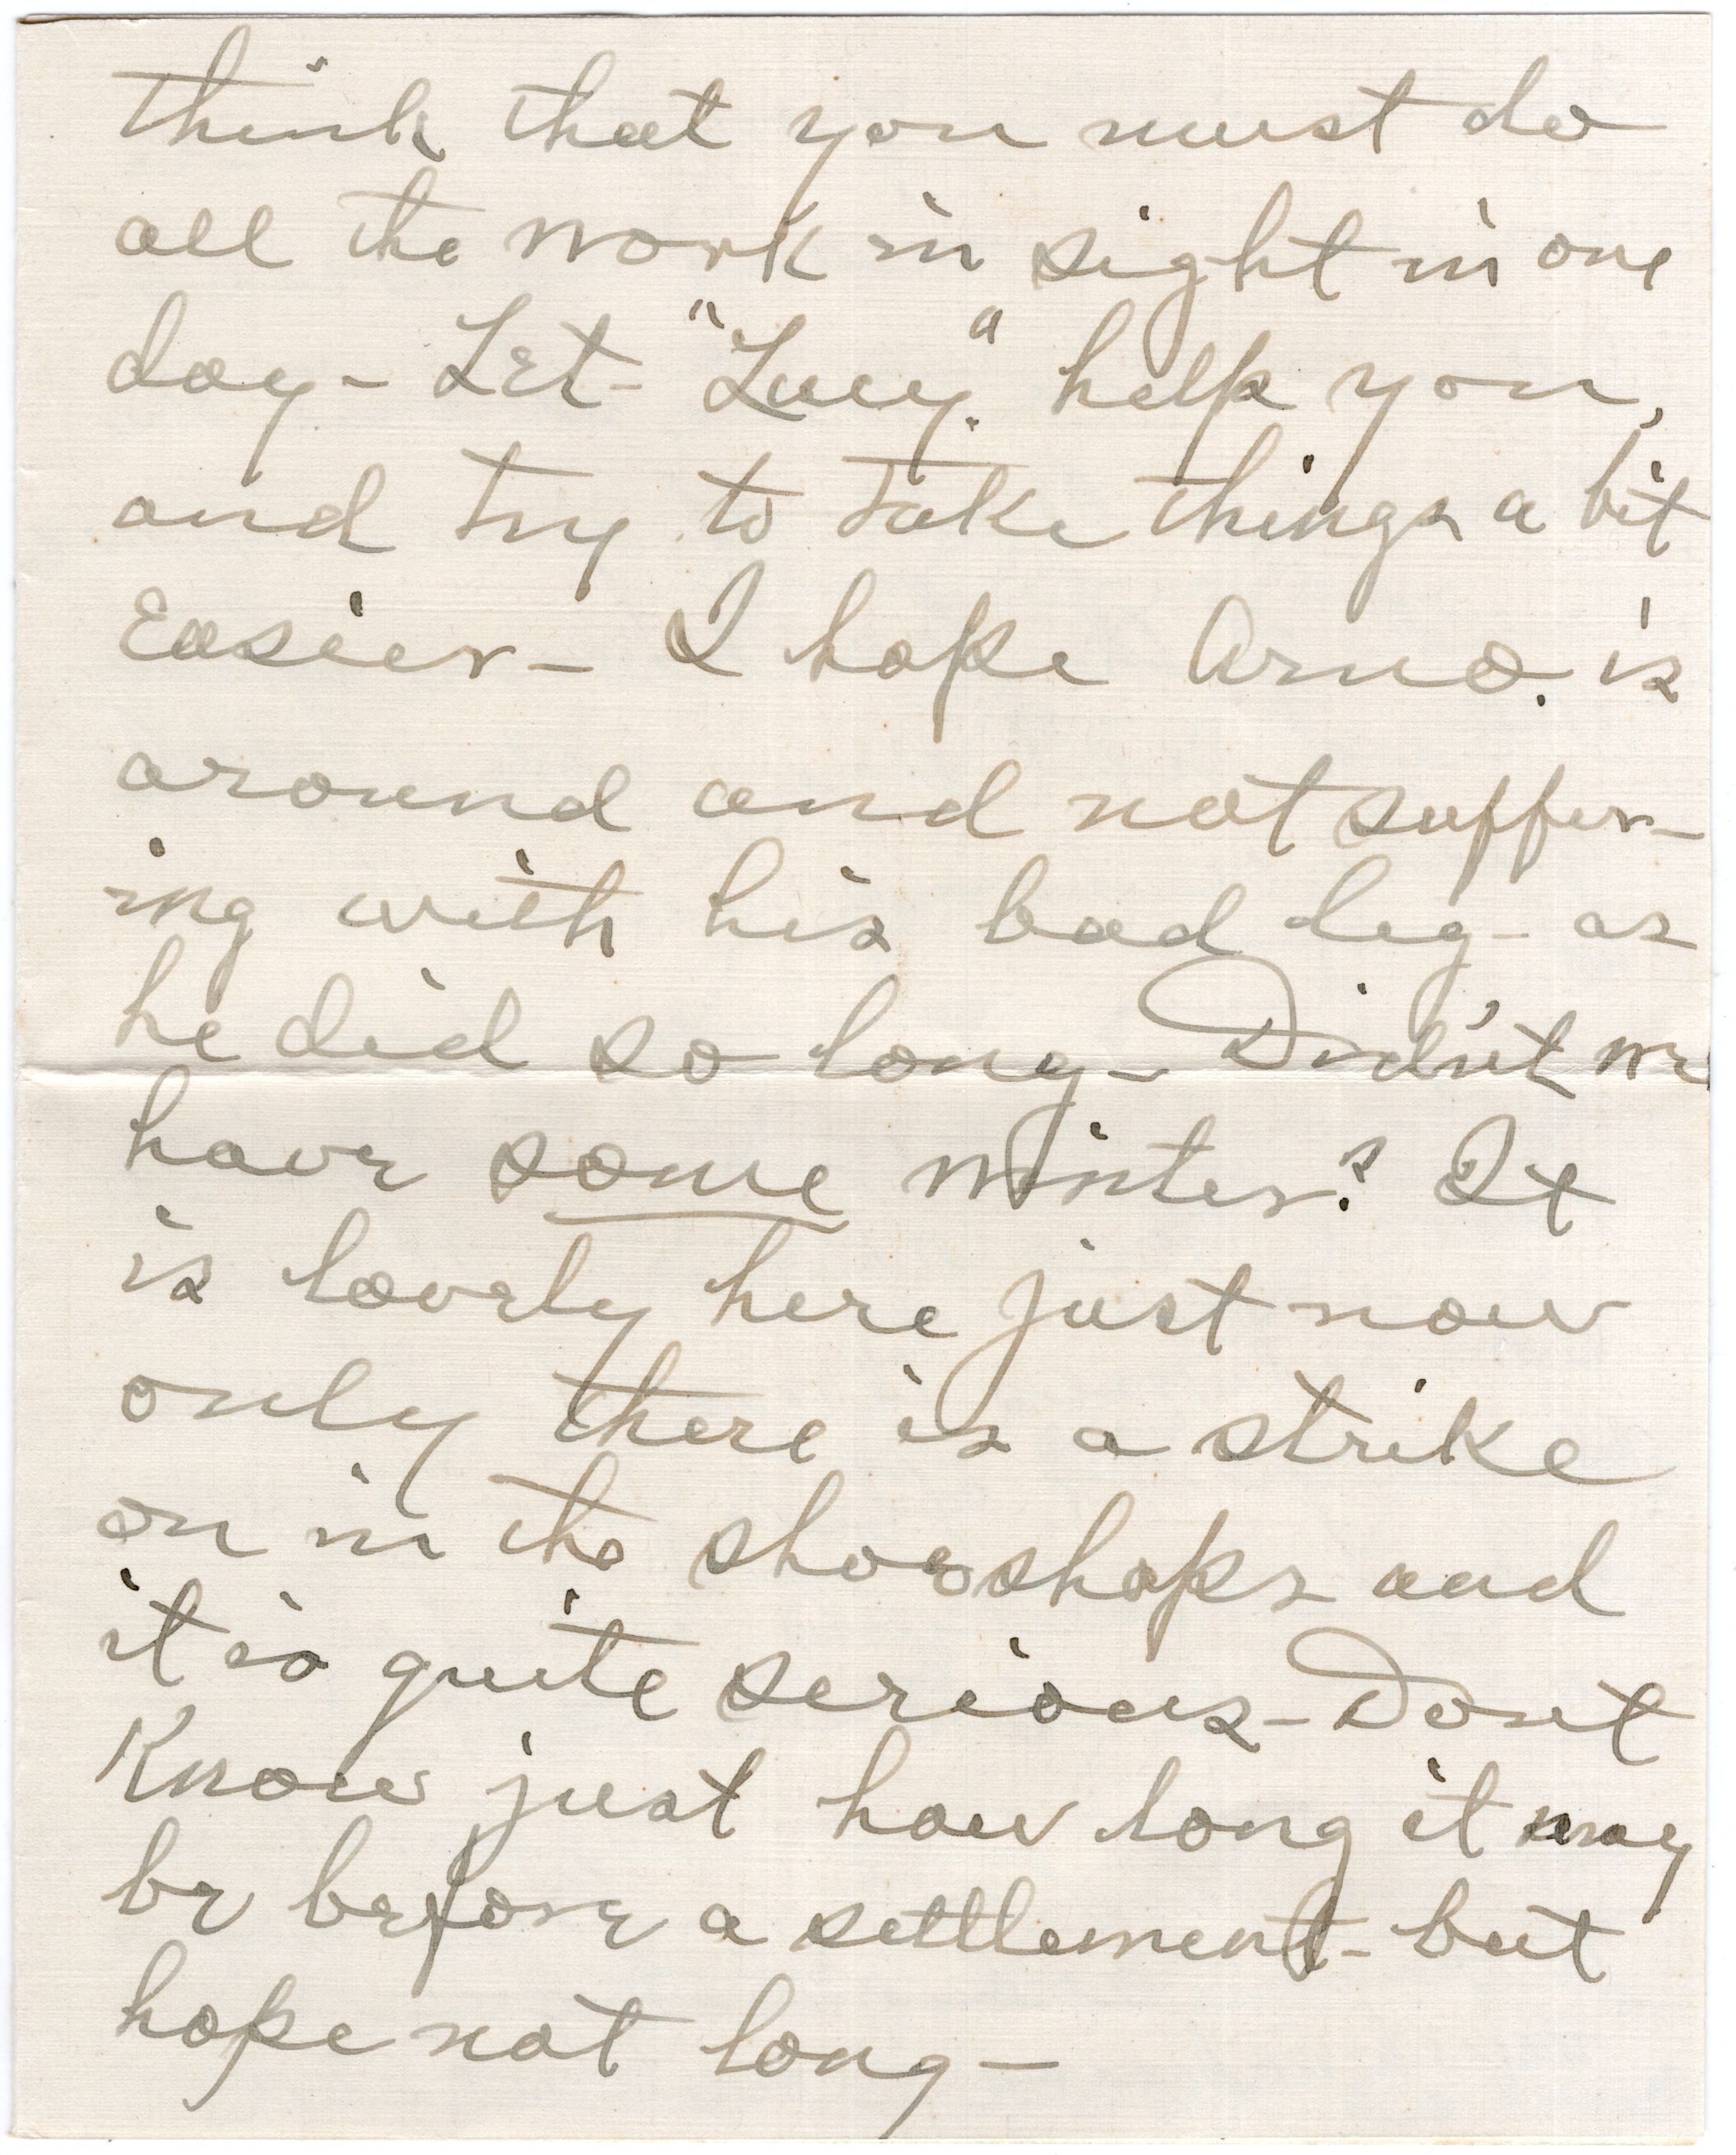 think that you must do
all the work in sight in one
day - Let - "Lucy." help you,
and try to take things a bit
Easier - I hope Arno. is
around and not suffer-
ing with his bad leg - as
he did so long - Didn't we
have some winter? It
is lovely here just now
only there is a strike
on in the shoeshops and
it is quite serious - Dont
Know just how long it may
be before a settlement - but
hope not long -